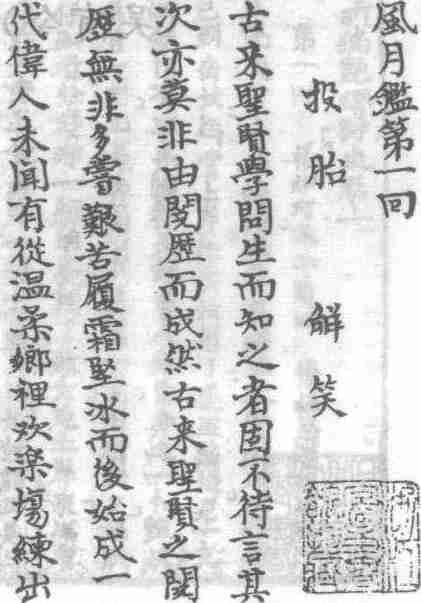 風月鑑第一回
投胎 觧笑
古来聖賢學問生而知之者固不待言其
次亦莫非由閱歷而成然古来聖賢之閱
歷無非多嘗艱苦履霜堅冰而後始成一
代偉人未聞有從温柔鄉裡欢楽場練出